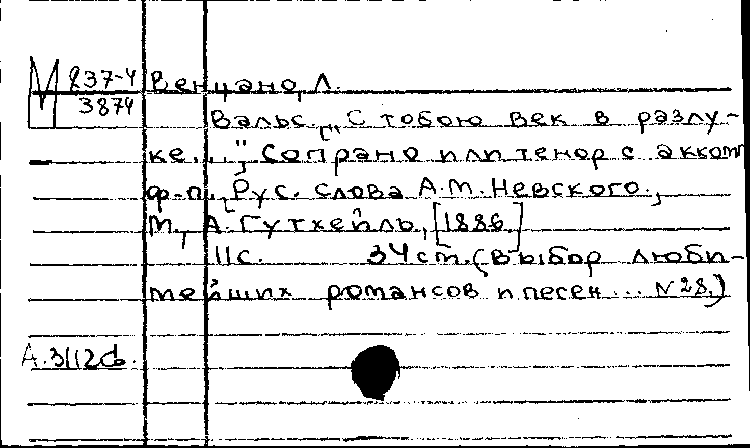 М 837-4 Венцано, Л.
3874
Вальс. ["С тобою век в разлу-
ке..."]. Сопрано или тенор с аккомп
ф-п., [Рус. слова А.М. Невского.,
М., А. Гутхейль, [1886.]
11 с. 34 ст. (Выбор люби-
тейших романсов и песен... № 28.)
А.3112